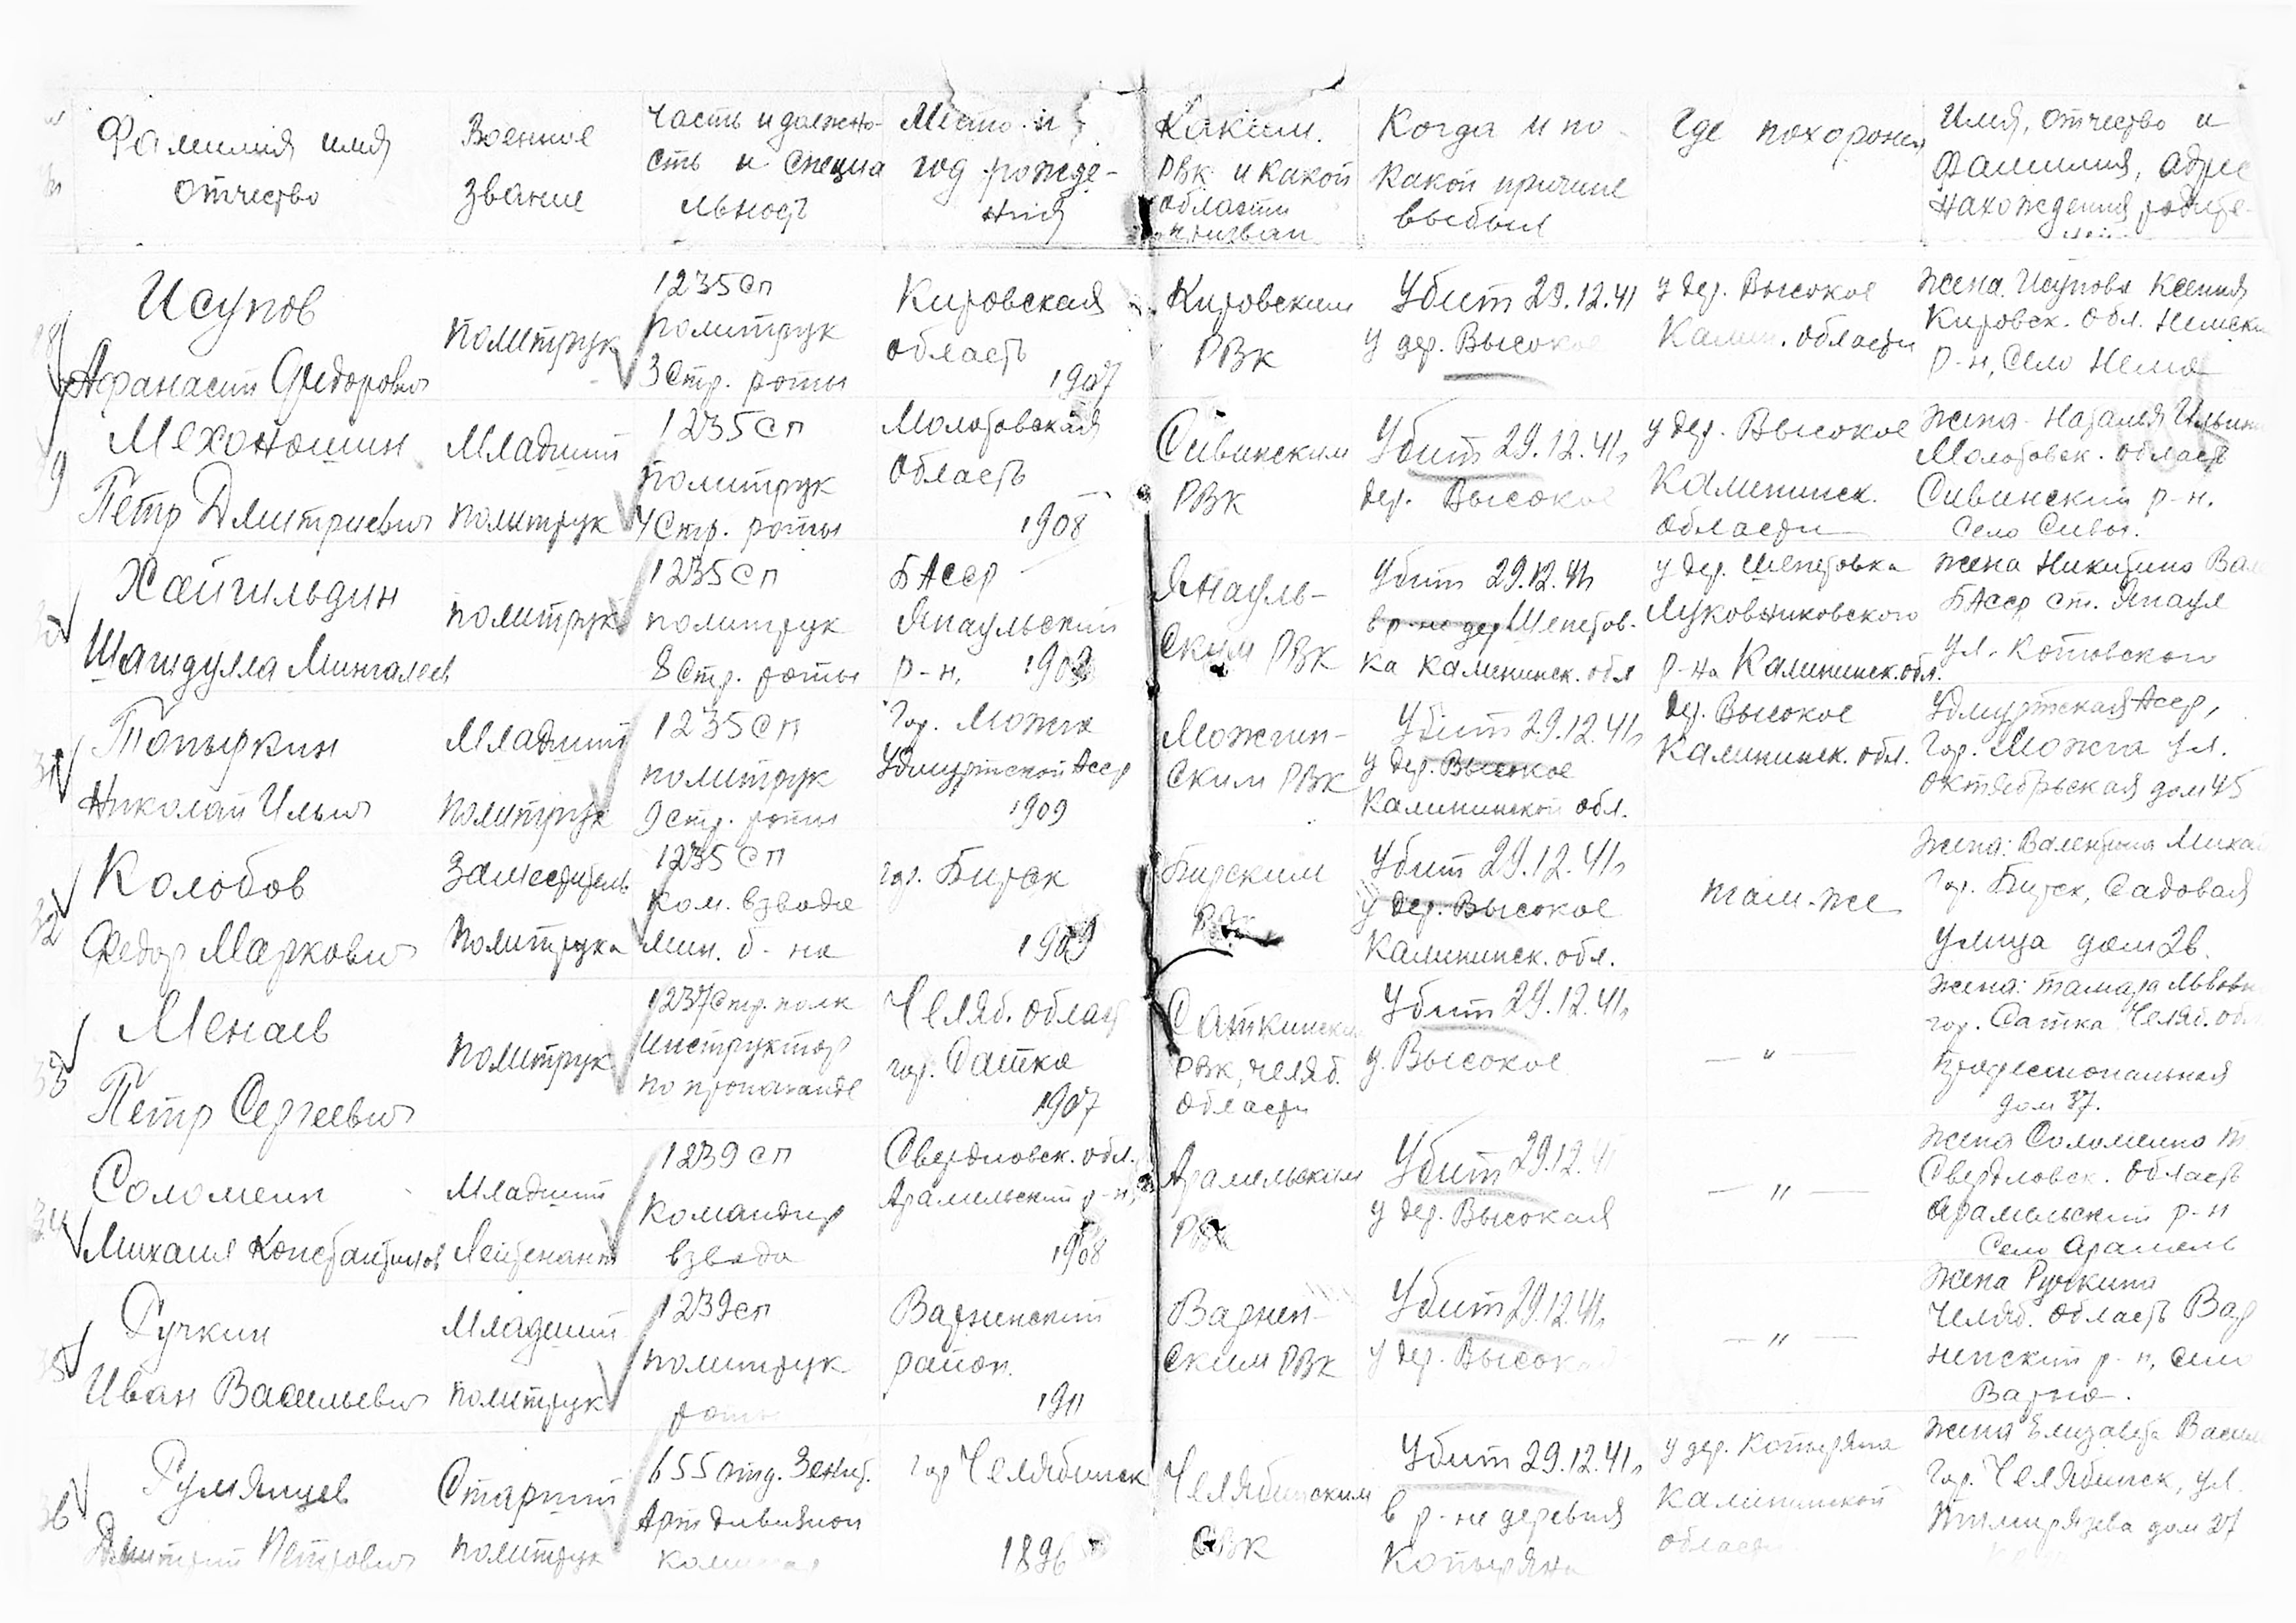 Фамилия имя
отчество
Военное
звание
Часть и должно-
сть и специа
льность
Место и
год рожде-
ния
Каким
РВК и какой
области
призван
Когда и по
какой причине
выбыл
Где похоронен
Имя, отчество и
фамилия, адрес
нахождения родите-
Исупов
Афанасий Федорович
политрук
1235 сп
политрук
3 стр. роты
Кировская
область
1907
Кировским
РВК
Убит 29.12.41
у дер. Высокое
у дер. Высокое
Калин. области
жена Исупова Ксения
Кировск. обл. Немски
р-н, село Нема
9
Мехоношин
Петр Дмитриевич
Младший
политрук
1235 сп
политрук
4 стр. роты
Молотовская
область
1908
Сивинским
РВК
Убит 29.12.41г
дер. Высокое
у дер. Высокое
Калининск.
области
жена - Наталья Ильини
Молотовск. область
Сивинский р-н.
село Сива.
Хайгильдин
Шагидулла Мингалеев
политрук
1235 сп
политрук
8 стр. роты
БАССР
Янаульский
р-н.
Янауль-
ским РВК
Убит 29.12.41г
в р-не дер Шепетов-
ка Калининск. обл
у дер. Шепетовка
Луковниковского
р-на Калининск. обл.
жена Никитина Вал
БАССР ст. Янаул
ул. Котовского
31
Топыркин
Николай Ильич
Младший
политрук
1235 сп
политрук
9 стр. роты
Гор. Можга
Удмуртской АССР
1909
Можгин-
ским РВК
Убит 29.12.41г
у дер. Высокое
Калининской обл.
дер. Высокое
Калининск. обл.
Удмуртская АССР,
Гор. Можга ул.
октябрьская дом 45
32
Колобов
Федор Маркович
Заместитель
политрука
1235 сп
ком. взвода
мин. б-на
гор. Бирск
1909
Бирским
РВК
Убит 29.12.41г
у дер. Высокое
Калининск. обл.
там-же
жена: Валентина Михай
Гор. Бирск, Садовая
улица дом 26.
33
Менаев
Петр Сергеевич
политрук
1237 стр. полк
Инструктор
по пропаганде
Челяб. област
гор. Сатка
1907
Саткинским
РВК, Челяб.
области
Убит 29.12.41г
д. Высокое
— " —
жена: Тамара Львовн
гор. Сатка Челяб. обл
профессиональная
дом 37.
34
Соломеин
Михаил Константинов
Младший
Лейтенант
1239 сп
Командир
взвода
Свердловск. обл.
Арамильский р-н,
1908
Арамильским
РВК
Убит 29.12.41
у дер. Высокая
— " —
жена Соломеина М
Свердловск. область
Арамильский р-н
село Арамиль
35
Ручкин
Иван Васильевич
Младший
политрук
1239 сп
политрук
роты
Варненский
район.
1911
Варнен-
ским РВК
Убит 29.12.41г
у дер. Высокая
— " —
жена Ручкина
Челяб. область Вар
ненский р-н, село
Варна.
36
Румянцев
Дмитрий Петрович
Старший
политрук
655 отд. зенит.
Арт дивизион
комиссар
гор Челябинск
1896
Челябинским
РВК
Убит 29.12.41г
в р-не деревня
Копыряна
у дер. Копыряна
Калининской
области
жена Елизавета Васил
Гор. Челябинск, ул.
Тимирязева дом 27